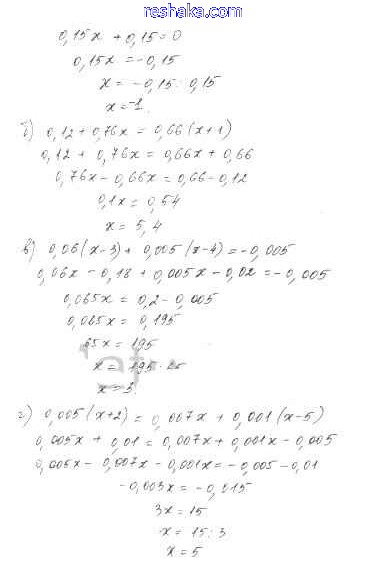 reshaka.com
0,15x + 0,15 = 0
0,15x = -0,15
x = -0,15 : 0,15
x = -1.
б) 0,12 + 0,76x = 0,66(x+1)
0,12 + 0,76x = 0,66x + 0,66
0,76x - 0,66x = 0,66 - 0,12
0,1x = 0,54
x = 5,4
в) 0,06(x-3) + 0,005(x-4) = -0,005
0,06x - 0,18 + 0,005x - 0,02 = -0,005
0,065x = 0,2 - 0,005
0,065x = 0,195
65x = 195
x = 195 : 65
x = 3.
г) 0,005(x+2) = 0,007x + 0,001(x-5)
0,005x + 0,01 = 0,007x + 0,001x - 0,005
0,005x - 0,007x - 0,001x = -0,005 - 0,01
-0,003x = -0,015
3x = 15
x = 15 : 3
x = 5